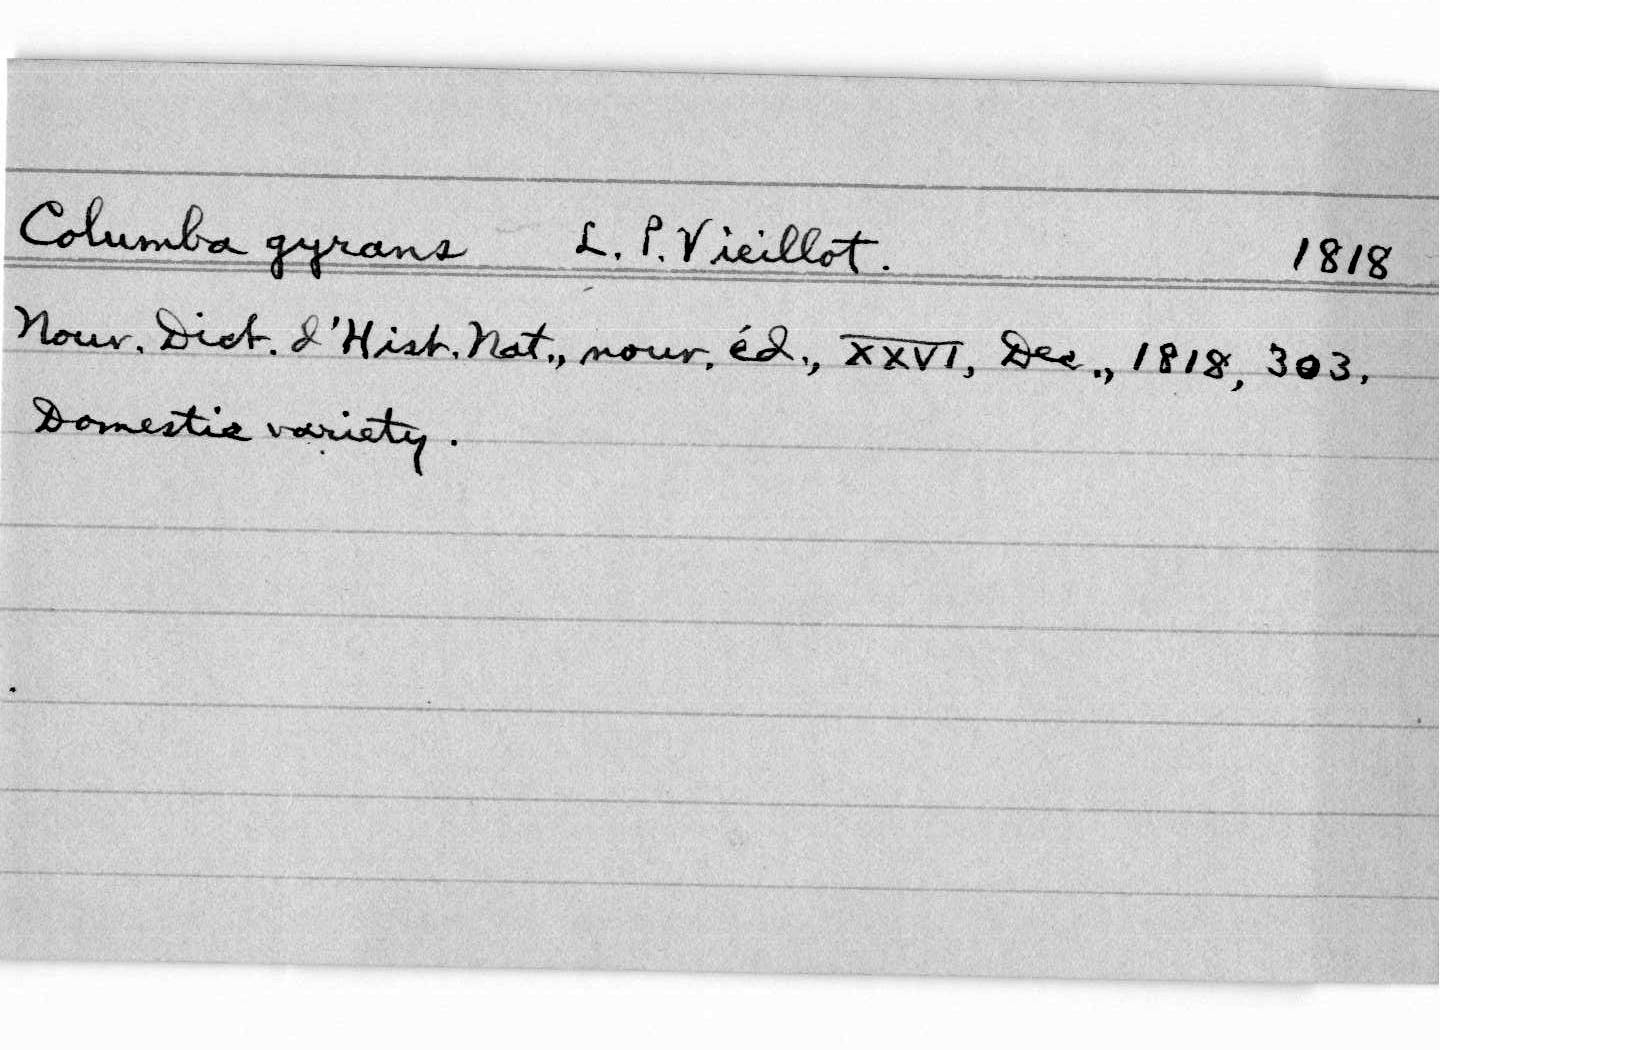 Columba gyrans L. P. Vieillot. 1818
Nouv. Dict. d'Hist. Nat., nouv. éd., XXVI, Dec., 1818, 303.
Domestic variety.